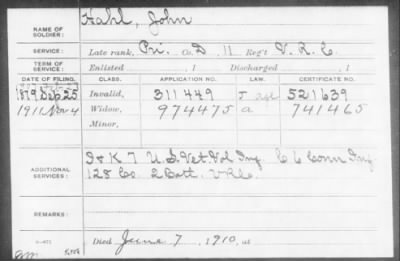 NAME OF SOLDIER: Hahl, John
SERVICE: Late rank, Pri. Co. D 11 Reg't V.R.C.
TERM OF SERVICE: Enlisted , 1 Discharged , 1
DATE OF FILING. CLASS. APPLICATION NO. LAW. CERTIFICATE NO.
1879 Sep 25 Invalid, 311449 521639
1910 Nov 4 Widow, 974475 a 741465
Minor,
ADDITIONAL SERVICES: I & K 7 U.S. Vet Vol Inf. C 6 Conn Inf.
125 Co. 2 Batt. V.R.C.
REMARKS:
Died June 7, 1910, at